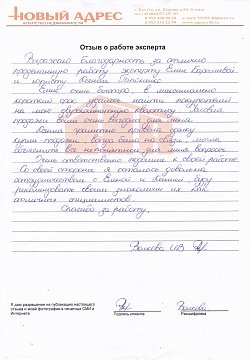 НОВЫЙ АДРЕС
АГЕНТСТВО НЕДВИЖИМОСТИ
Отзыв о работе эксперта
Выражаю благодарность за отлично
проделанную работу эксперту Елене
и юристу Ксении
Елене очень быстро, в максимально
короткий срок удалось найти покупателей
на мою двухкомнатную квартиру. Условия
продажи были очень выгодны для меня.
Ксения грамотно провела сделку
купли-продажи, всегда была на связи, могла
объяснить все непонятные для меня вопросы.
Очень ответственно подошли к своей работе.
Со своей стороны я осталась довольна
сотрудничеством с Еленой и Ксенией. Буду
рекомендовать своим знакомым их как
отличных специалистов.
Спасибо за работу.
Волкова
Я даю разрешение на публикацию настоящего
отзыва и моей фотографии в печатных СМИ и
Интернете
Подпись клиента
Волкова
Расшифровка